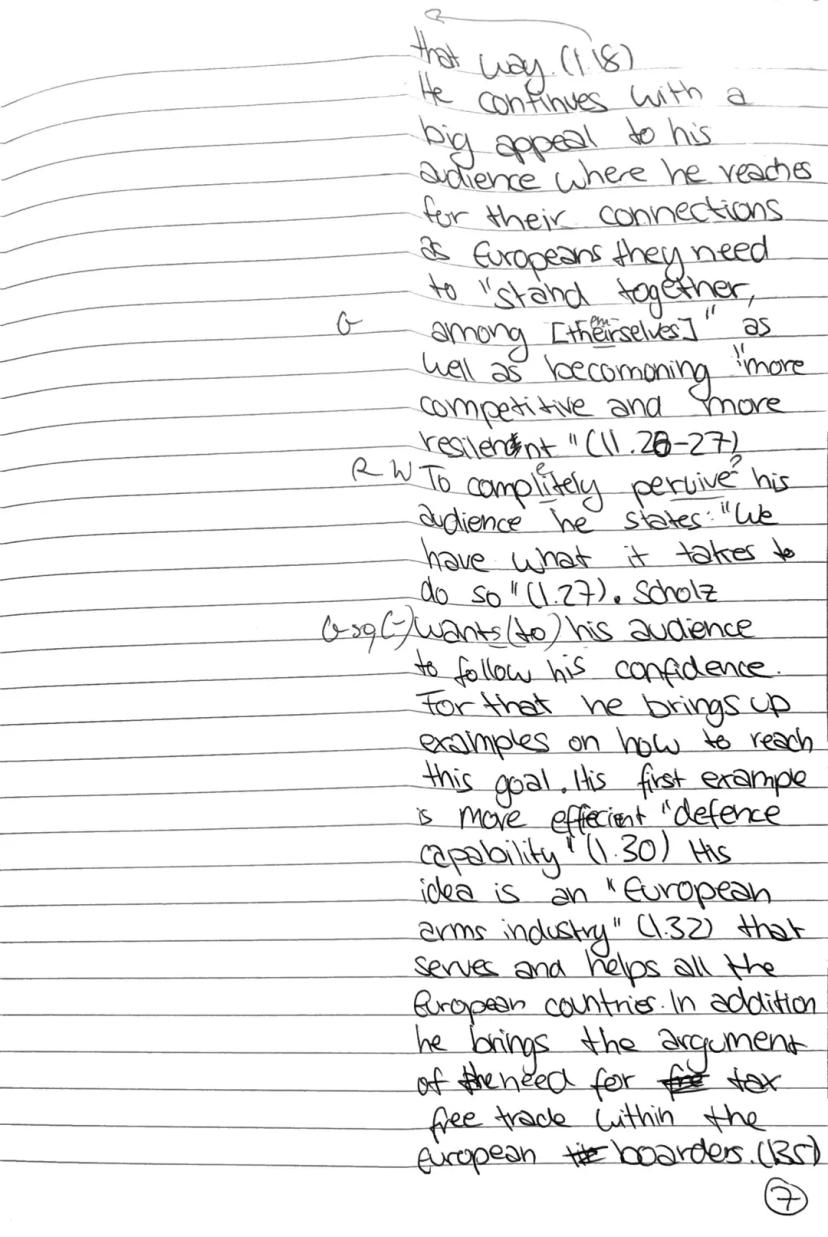 that way. (l.18)
He continues with a
big appeal to his
audience where he reaches
for their connections
as Europeans they need
to "stand together,
em
G among [theirselves]" as
well as becomoning "more
competitive and more
resilent" (ll.26-27)
e ?
R W To complitely pervive his
audience he states: "We
have what it takes to
do so" (l.27). Scholz
G sg(-) wants (to) his audience
to follow his confidence.
For that he brings up
examples on how to reach
this goal. His first example
is more effecient "defence
capability" (l.30) His
idea is an "European
arms industry" (l.32) that
serves and helps all the
European countries. In addition
he brings the argument
of the need for tax
free trade within the
european boarders. (l.35)
7